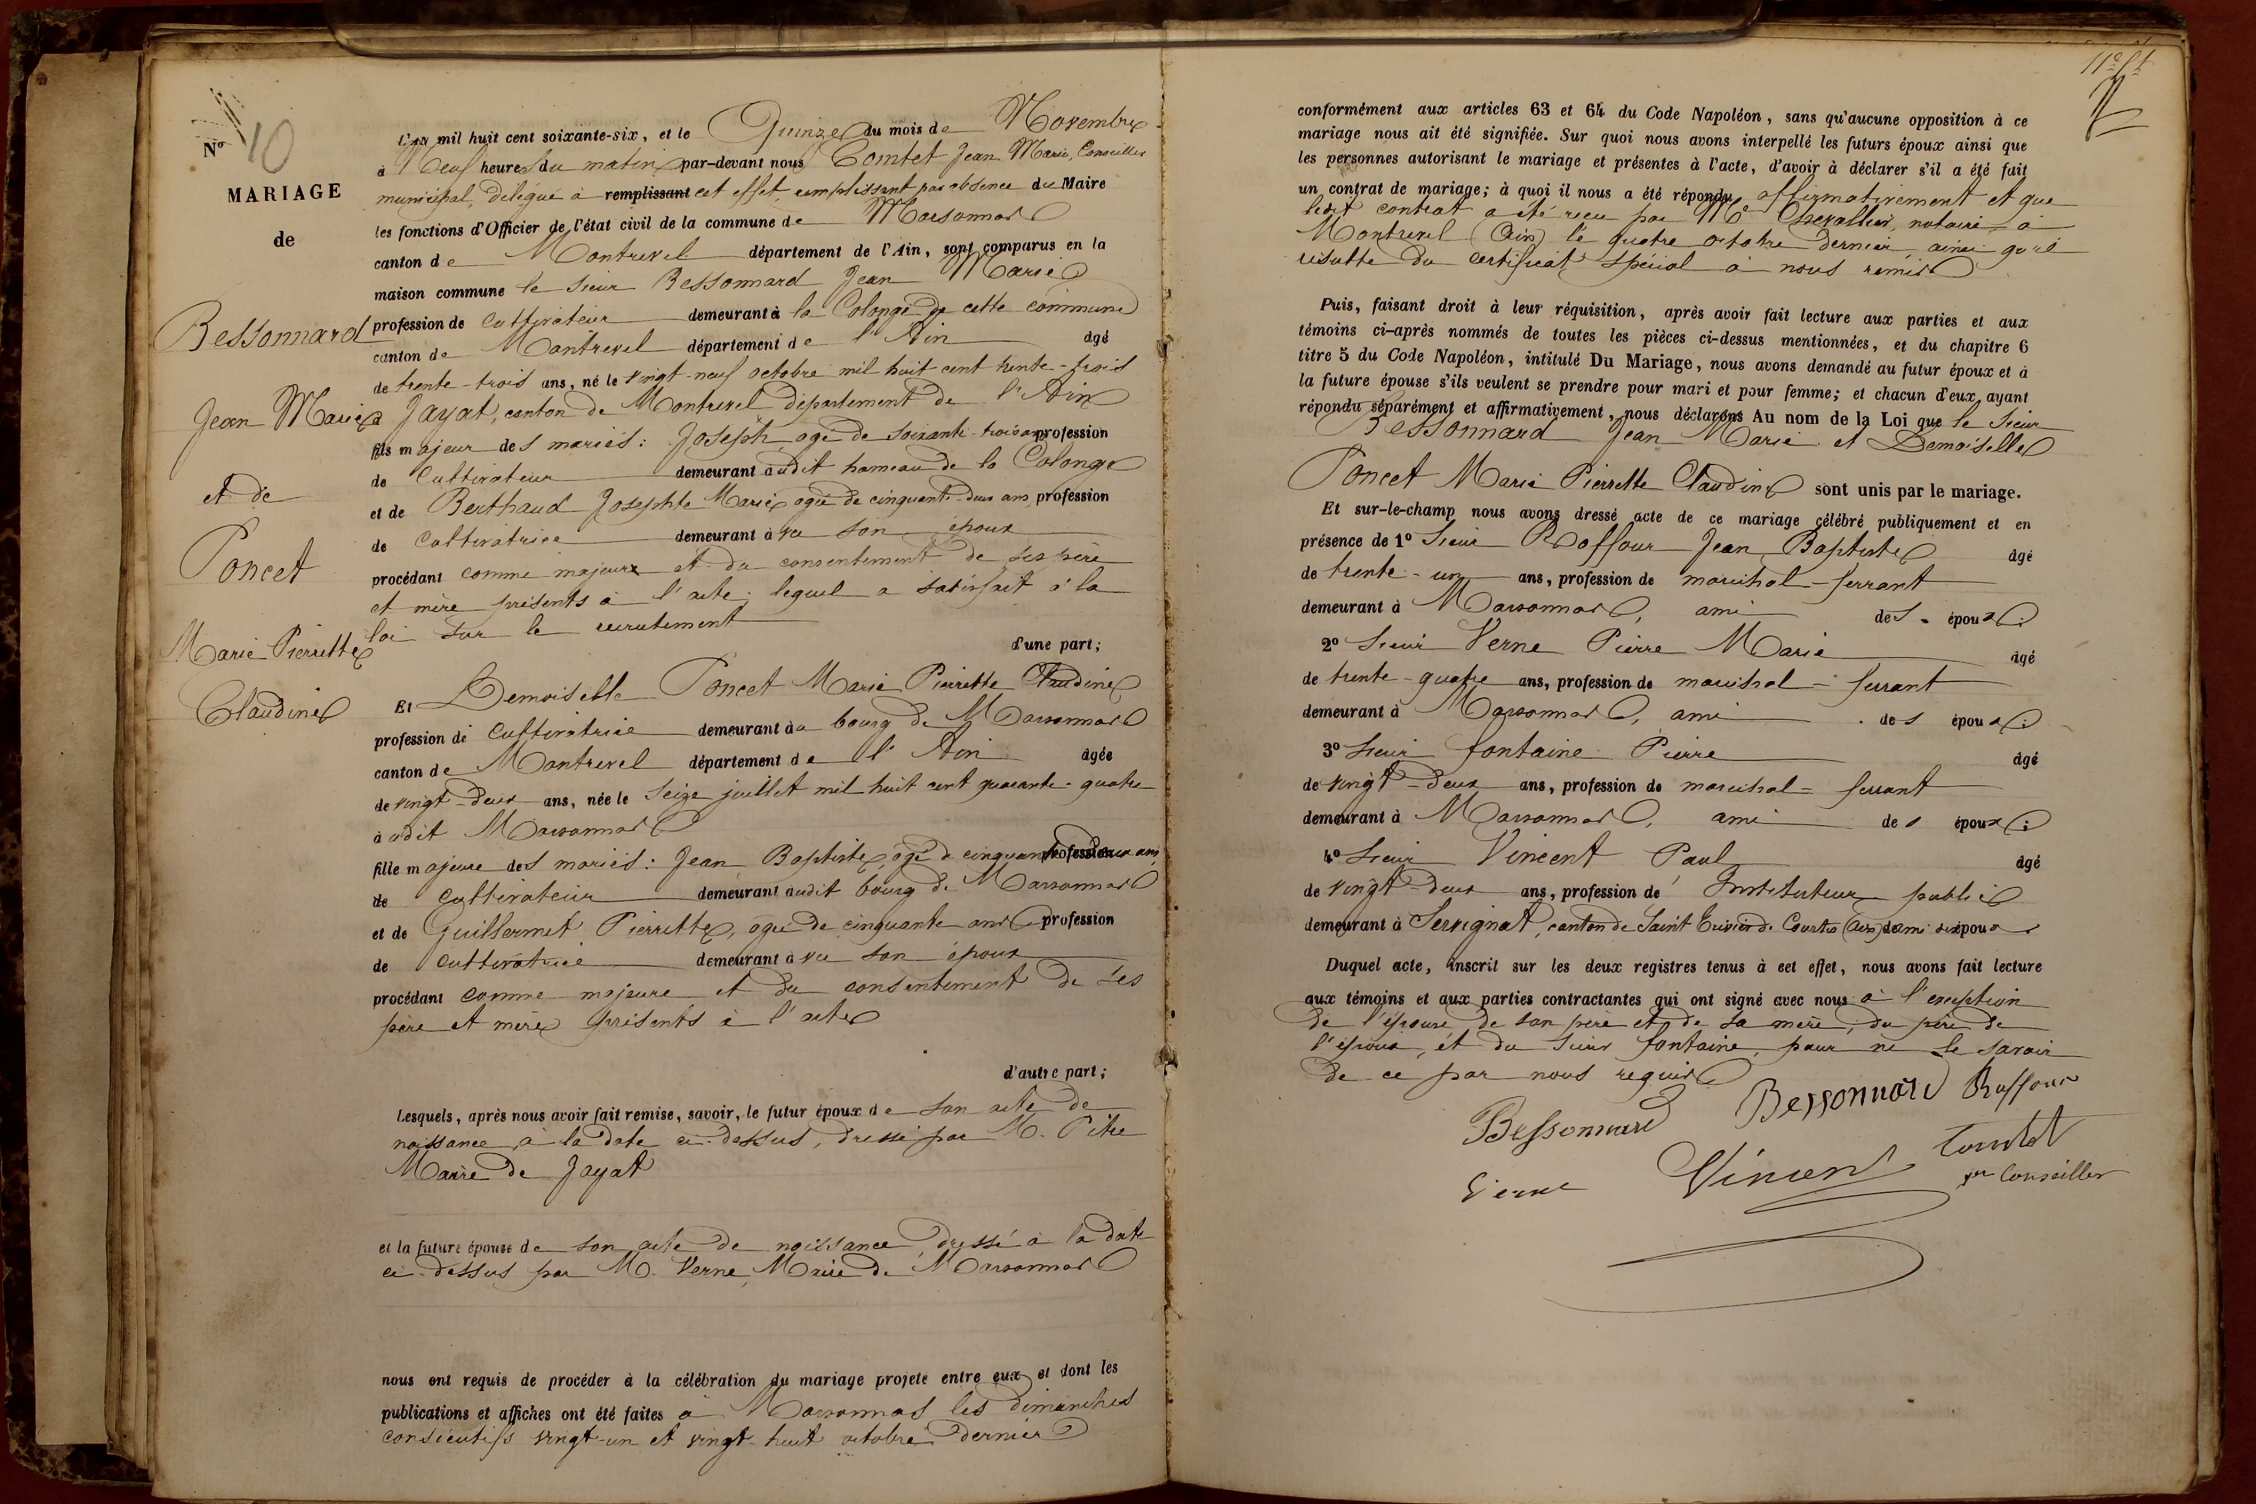 Nº 10
MARIAGE
de
Bessonnard
Jean Marie
et de
Poncet
Marie Pierrette
Claudine
L'an mil huit cent soixante-six, et le Quinze du mois de Novembre
à Neuf heures du matin par-devant nous Comtet Jean Marie, Conseiller
municipal, délégué à remplissant cet effet, remplissant par absence du Maire
les fonctions d'Officier de l'état civil de la commune de Marsonnas
canton de Montrevel département de l'Ain, sont comparus en la
maison commune le sieur Bessonnard Jean Marie
profession de Cultivateur demeurant à la Colonge de cette commune
canton de Montrevel département de l'Ain âgé
de trente-trois ans, né le vingt-neuf octobre mil huit cent trente-trois
à Jayat, canton de Montrevel département de l'Ain
fils majeur des mariés: Joseph agé de soixante-trois ans profession
de Cultivateur demeurant à udit hameau de la Colonge
et de Berthaud Josephte Marie agée de cinquante-deux ans, profession
de Cultivatrice demeurant à vec son époux
procédant comme majeur et du consentement de ses père
et mère présents à l'acte; lequel a satisfait à la
loi sur le recrutement
d'une part;
Et Demoiselle Poncet Marie Pierrette Claudine
profession de Cultivatrice demeurant à u bourg de Marsonnas
canton de Montrevel département de l'Ain âgée
de vingt-deux ans, née le Seize juillet mil huit cent quarante-quatre
à udit Marsonnas
fille majeure des mariés: Jean Baptiste, agé de cinquante-deux ans, profession
de Cultivateur demeurant audit bourg de Marsonnas
et de Guillermet Pierrette, agée de cinquante ans profession
de cultivatrice demeurant à vec son époux
procédant comme majeure et du consentement de ses
père et mère présents à l'acte
d'autre part;
Lesquels, après nous avoir fait remise, savoir, le futur époux de son acte de
naissance à la date ci-dessus, dressé par M. Pitre
Maire de Jayat
et la future épouse de son acte de naissance, dressé à la date
ci-dessus par M. Verne, Maire de Marsonnas
nous ont requis de procéder à la célébration du mariage projeté entre eux et dont les
publications et affiches ont été faites à Marsonnas les dimanches
consécutifs vingt-un et vingt-huit octobre dernier
conformément aux articles 63 et 64 du Code Napoléon, sans qu'aucune opposition à ce
mariage nous ait été signifiée. Sur quoi nous avons interpellé les futurs époux ainsi que
les personnes autorisant le mariage et présentes à l'acte, d'avoir à déclarer s'il a été fait
un contrat de mariage; à quoi il nous a été répondu affirmativement et que
ledit contrat a été reçu par Me Chevallier, notaire à
Montrevel (Ain) le quatre octobre dernier, ainsi qu'il
résulte du certificat spécial à nous remis
Puis, faisant droit à leur réquisition, après avoir fait lecture aux parties et aux
témoins ci-après nommés de toutes les pièces ci-dessus mentionnées, et du chapitre 6
titre 5 du Code Napoléon, intitulé Du Mariage, nous avons demandé au futur époux et à
la future épouse s'ils veulent se prendre pour mari et pour femme; et chacun d'eux ayant
répondu séparément et affirmativement, nous déclarons Au nom de la Loi que le sieur
Bessonnard Jean Marie et Demoiselle
Poncet Marie Pierrette Claudine sont unis par le mariage.
Et sur-le-champ nous avons dressé acte de ce mariage célébré publiquement et en
présence de 1º Sieur Roffour Jean Baptiste âgé
de trente-un ans, profession de maréchal-ferrant
demeurant à Marsonnas, ami des époux;
2º Sieur Verne Pierre Marie âgé
de trente-quatre ans, profession de maréchal-ferrant
demeurant à Marsonnas, ami des époux;
3º Sieur fontaine Pierre âgé
de vingt-deux ans, profession de maréchal-ferrant
demeurant à Marsonnas, ami des époux;
4º Sieur Vincent Paul âgé
de vingt-deux ans, profession de Instituteur public
demeurant à Servignat, canton de Saint Trivier de Courtes (Ain) ami des époux
Duquel acte, inscrit sur les deux registres tenus à cet effet, nous avons fait lecture
aux témoins et aux parties contractantes qui ont signé avec nous à l'exception
de l'épouse, de son père et de sa mère, du père de
l'époux, et du sieur fontaine, pour ne le savoir
de ce par nous requis
Bessonnard Bessonnard Roffour
Verne Vincent Comtet
Conseiller